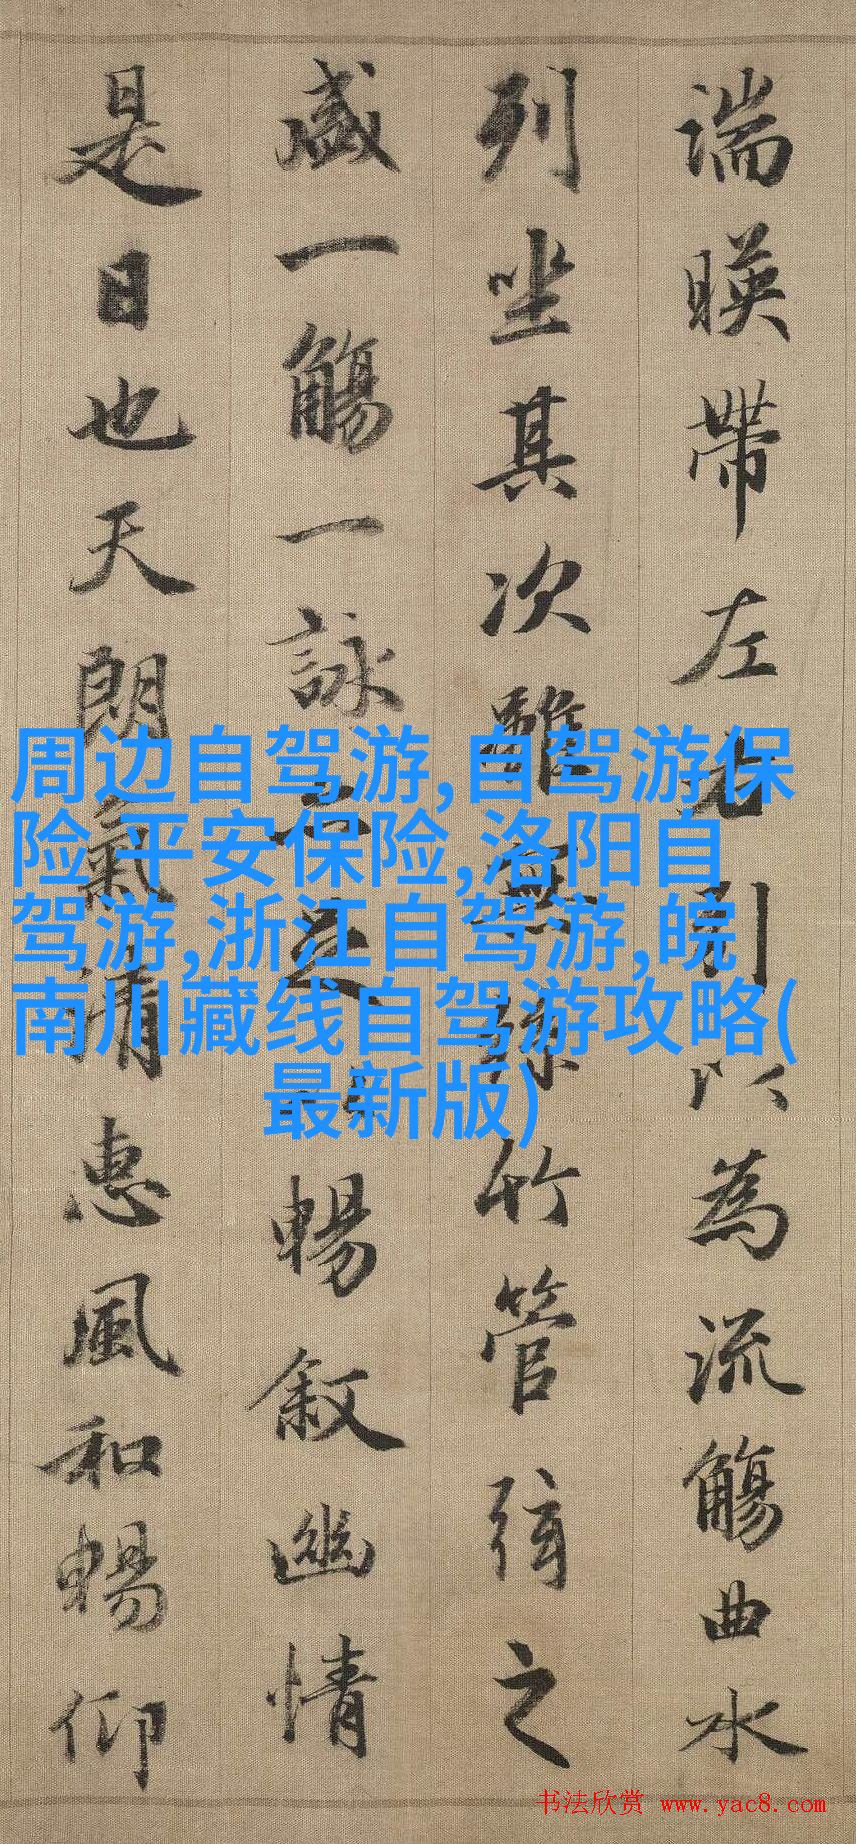 湍暎帶左右引以為流觴曲水
列坐其次雖無絲竹管弦之
盛一觴一詠亦足以暢敘幽情
是日也天朗氣清惠風和暢仰
周边自驾游,自驾游保
险 平安保险,洛阳自
驾游,浙江自驾游,皖
南川藏线自驾游攻略(
最新版)
书法欣赏 www.yac8.com